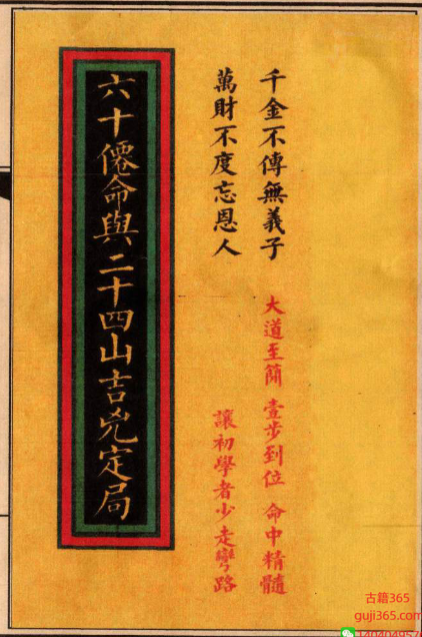 千金不傳無義子
萬財不度忘恩人
大道至簡 壹步到位 命中精髓
讓初學者少走彎路
六十僊命與二十四山吉兇定局
古籍365
guji365.com